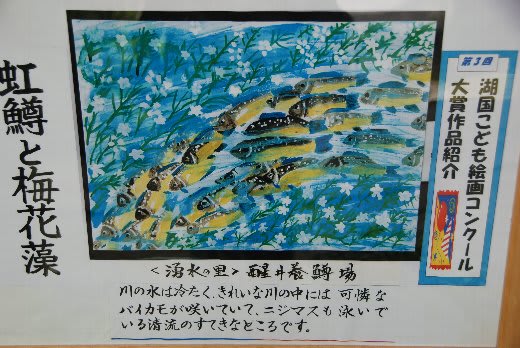 虹鱒と梅花藻
第3回
湖国こども絵画コンクール
大賞作品紹介
<湧水の里> 醒井養鱒場
川の水は冷たく、きれいな川の中には 可憐な
バイカモが咲いていて、ニジマスも 泳いで
いる清流のすてきなところです。